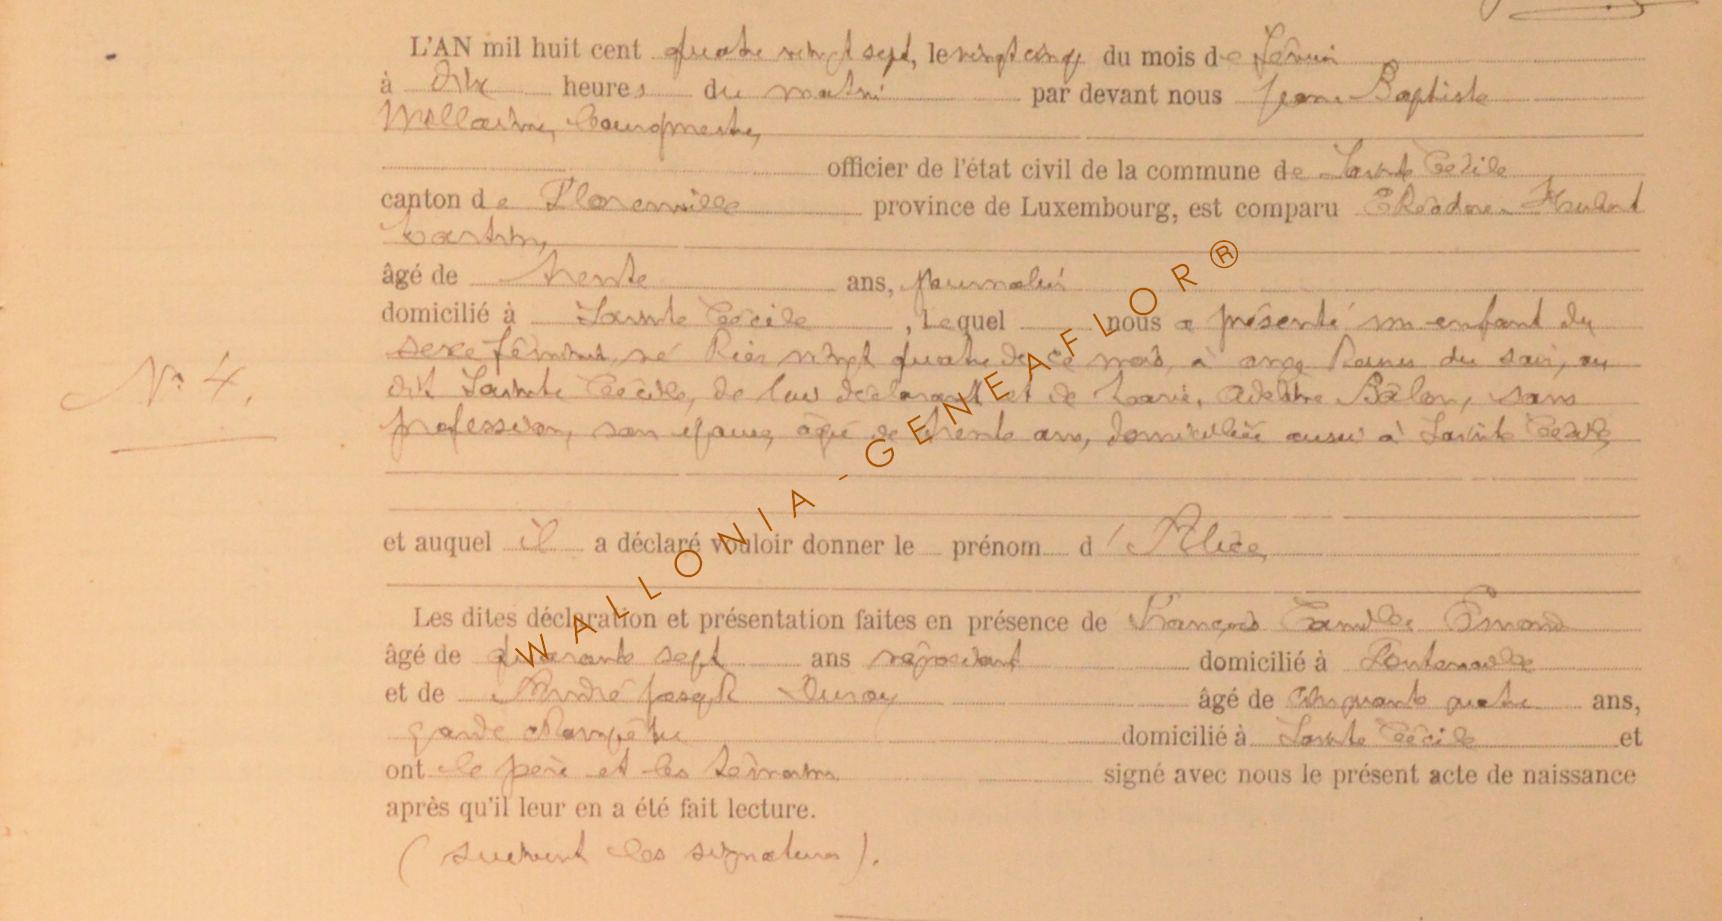 L'AN mil huit cent quatre vingt sept, le vingt cinq du mois de Février
à dix heures du matin par devant nous Jean Baptiste
bourgmestre,
officier de l'état civil de la commune de Sainte Cécile
canton de Florenville province de Luxembourg, est comparu Théodore Hubert
âgé de trente ans, journalier
domicilié à Sainte Cécile, Lequel nous a présenté un enfant du
sexe féminin, né hier vingt quatre de ce mois, à onze heures du soir, au
dit Sainte Cécile, de lui déclarant et de Marie, Adeline Balon, sans
profession, son épouse, âgée de trente ans, domiciliée aussi à Sainte Cécile,
N° 4.
et auquel il a déclaré vouloir donner le prénom d'Alice,
Les dites déclaration et présentation faites en présence de François Camille
âgé de quarante sept ans négociant domicilié à Fontenoille
et de André Joseph Duroy âgé de cinquante quatre ans,
garde champêtre domicilié à Sainte Cécile et
ont le père et les témoins signé avec nous le présent acte de naissance
après qu'il leur en a été fait lecture.
(suivent les signatures).
WALLONIA-GENEAFLOR®